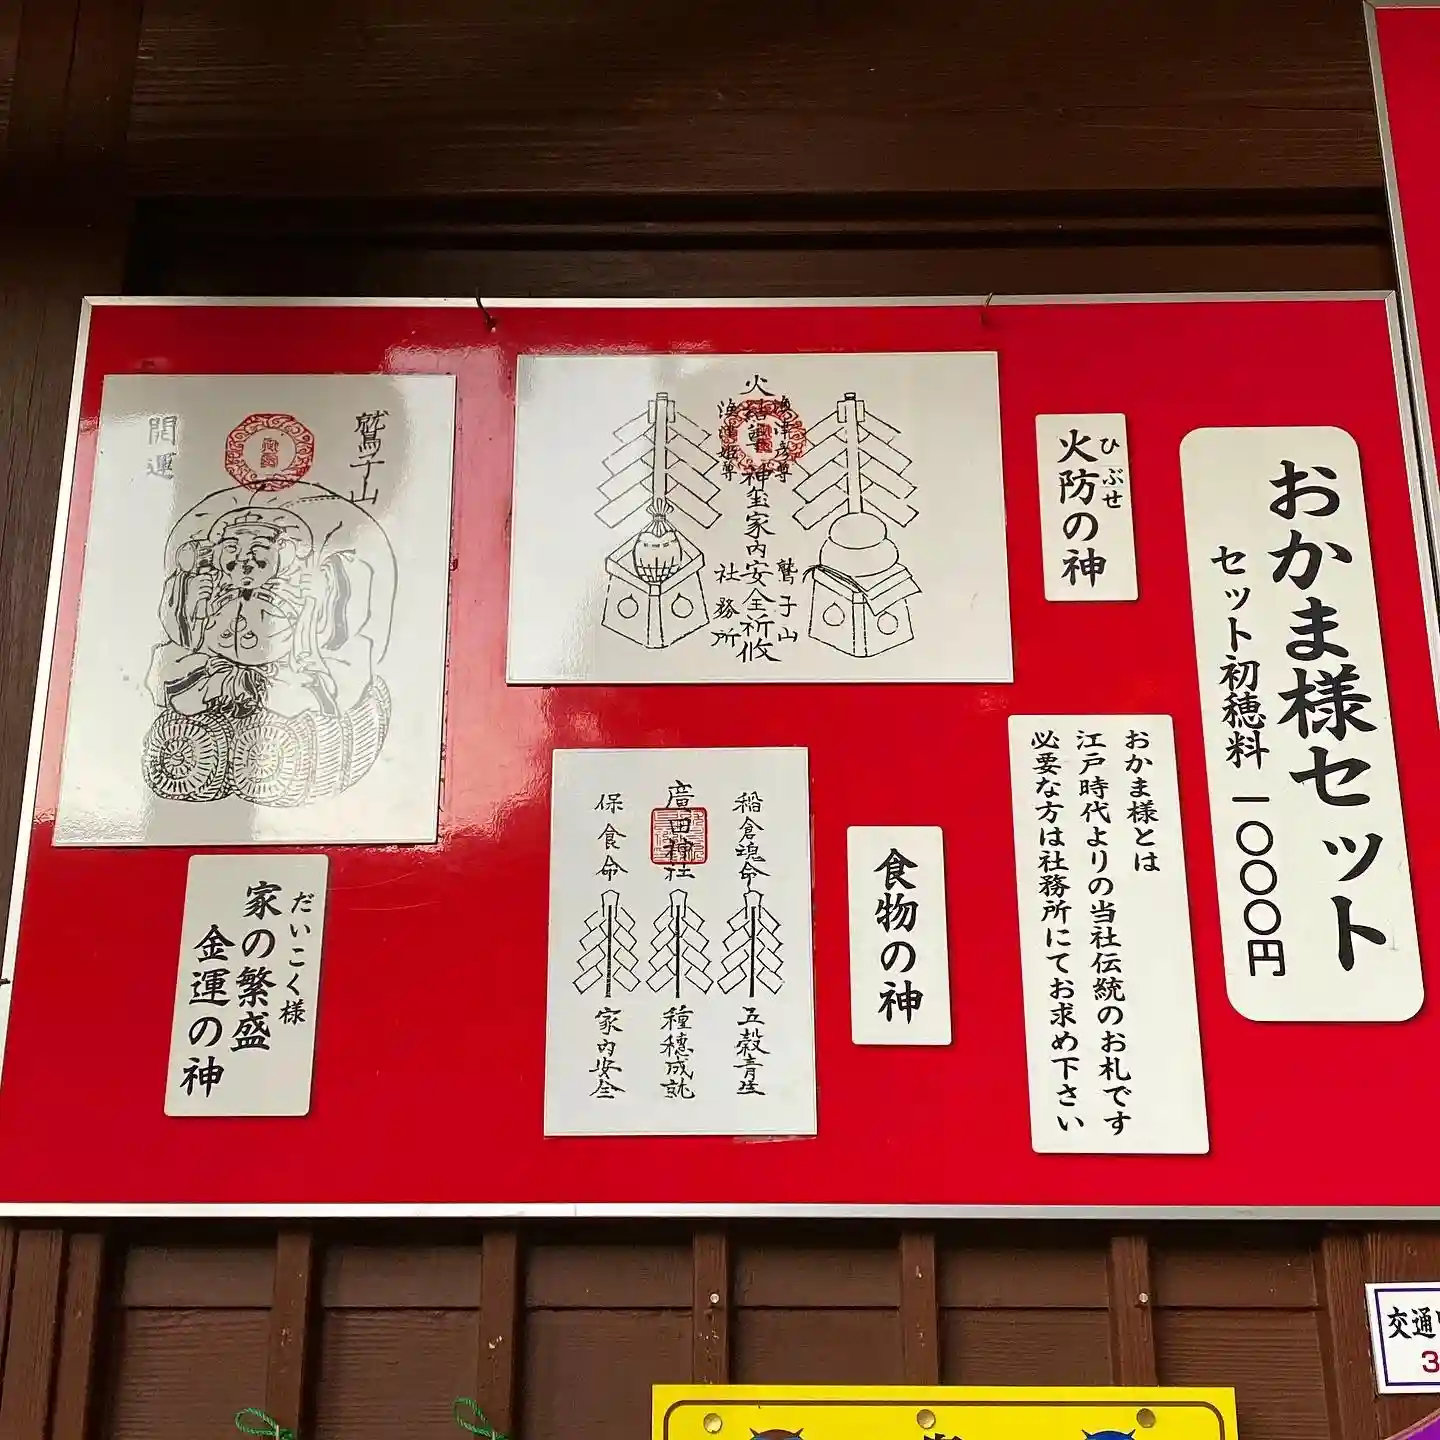 おかま様セット
セット初穂料 一〇〇〇円
ひぶせ
火防の神
おかま様とは
江戸時代よりの当社伝統のお札です
必要な方は社務所にてお求め下さい
火結尊 神璽家内安全祈攸
鷲子山
社務所
食物の神
稲倉魂命
五穀青生
廣田神社
種穂成就
保食命
家内安全
鷲子山
開運
だいこく様
家の繁盛
金運の神
交通
3